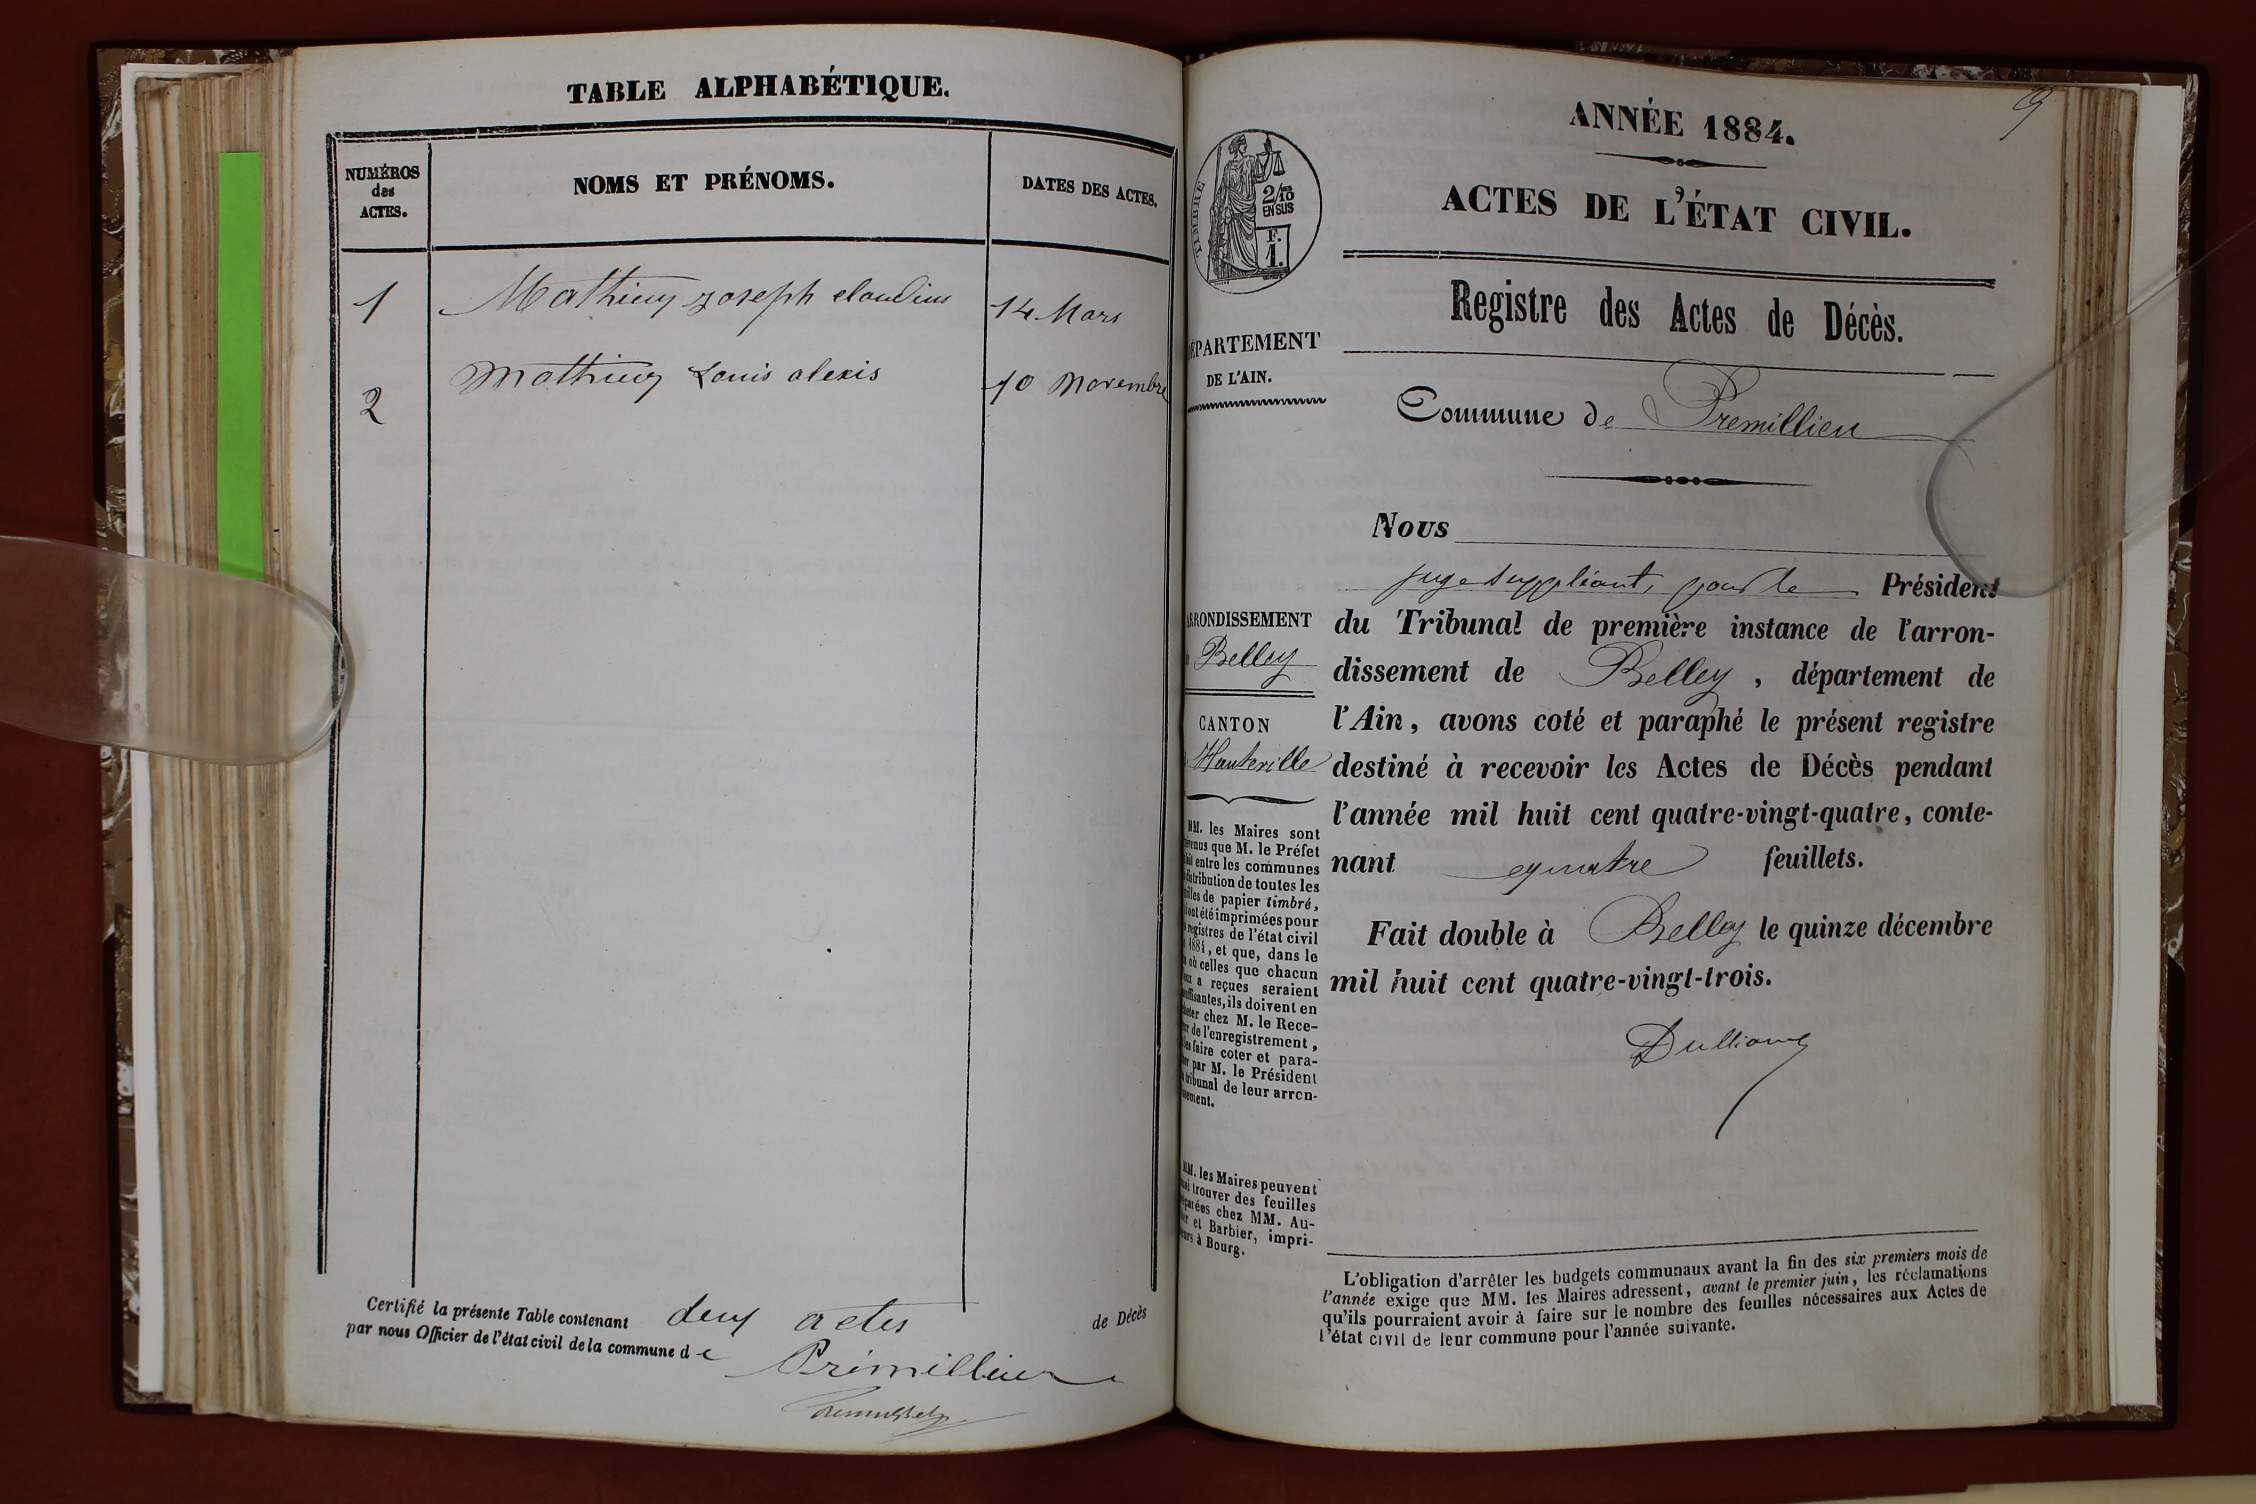 TABLE ALPHABÉTIQUE.
NUMÉROS
des
ACTES.
NOMS ET PRÉNOMS.
DATES DES ACTES.
1 Mathieu Joseph claudius 14 Mars
2 Mathieu Louis alexis 10 Novembre
Certifié la présente Table contenant deux actes de Décès
par nous Officier de l'état civil de la commune de Prémillieu
9
ANNÉE 1884.
ACTES DE L'ÉTAT CIVIL.
TIMBRE
2/10
EN SUS
F.
1.
Registre des Actes de Décès.
DÉPARTEMENT
DE L'AIN.
Commune de Premillieu
Nous
juge suppléant, pour le Président
du Tribunal de première instance de l'arron-
dissement de Belley, département de
l'Ain, avons coté et paraphé le présent registre
destiné à recevoir les Actes de Décès pendant
l'année mil huit cent quatre-vingt-quatre, conte-
nant quatre feuillets.
Fait double à Belley le quinze décembre
mil huit cent quatre-vingt-trois.
ARRONDISSEMENT
Belley
CANTON
Hauteville
MM. les Maires sont
que M. le Préfet
entre les communes
distribution de toutes les
de papier timbré,
ont été imprimées pour
registres de l'état civil
1884, et que, dans le
où celles que chacun
a reçues seraient
ils doivent en
chez M. le Rece-
de l'enregistrement,
les faire coter et para-
par M. le Président
tribunal de leur arron-
MM. les Maires peuvent
trouver des feuilles
chez MM. Au-
et Barbier, impri-
à Bourg.
L'obligation d'arrêter les budgets communaux avant la fin des six premiers mois de
l'année exige que MM. les Maires adressent, avant le premier juin, les réclamations
qu'ils pourraient avoir à faire sur le nombre des feuilles nécessaires aux Actes de
l'état civil de leur commune pour l'année suivante.